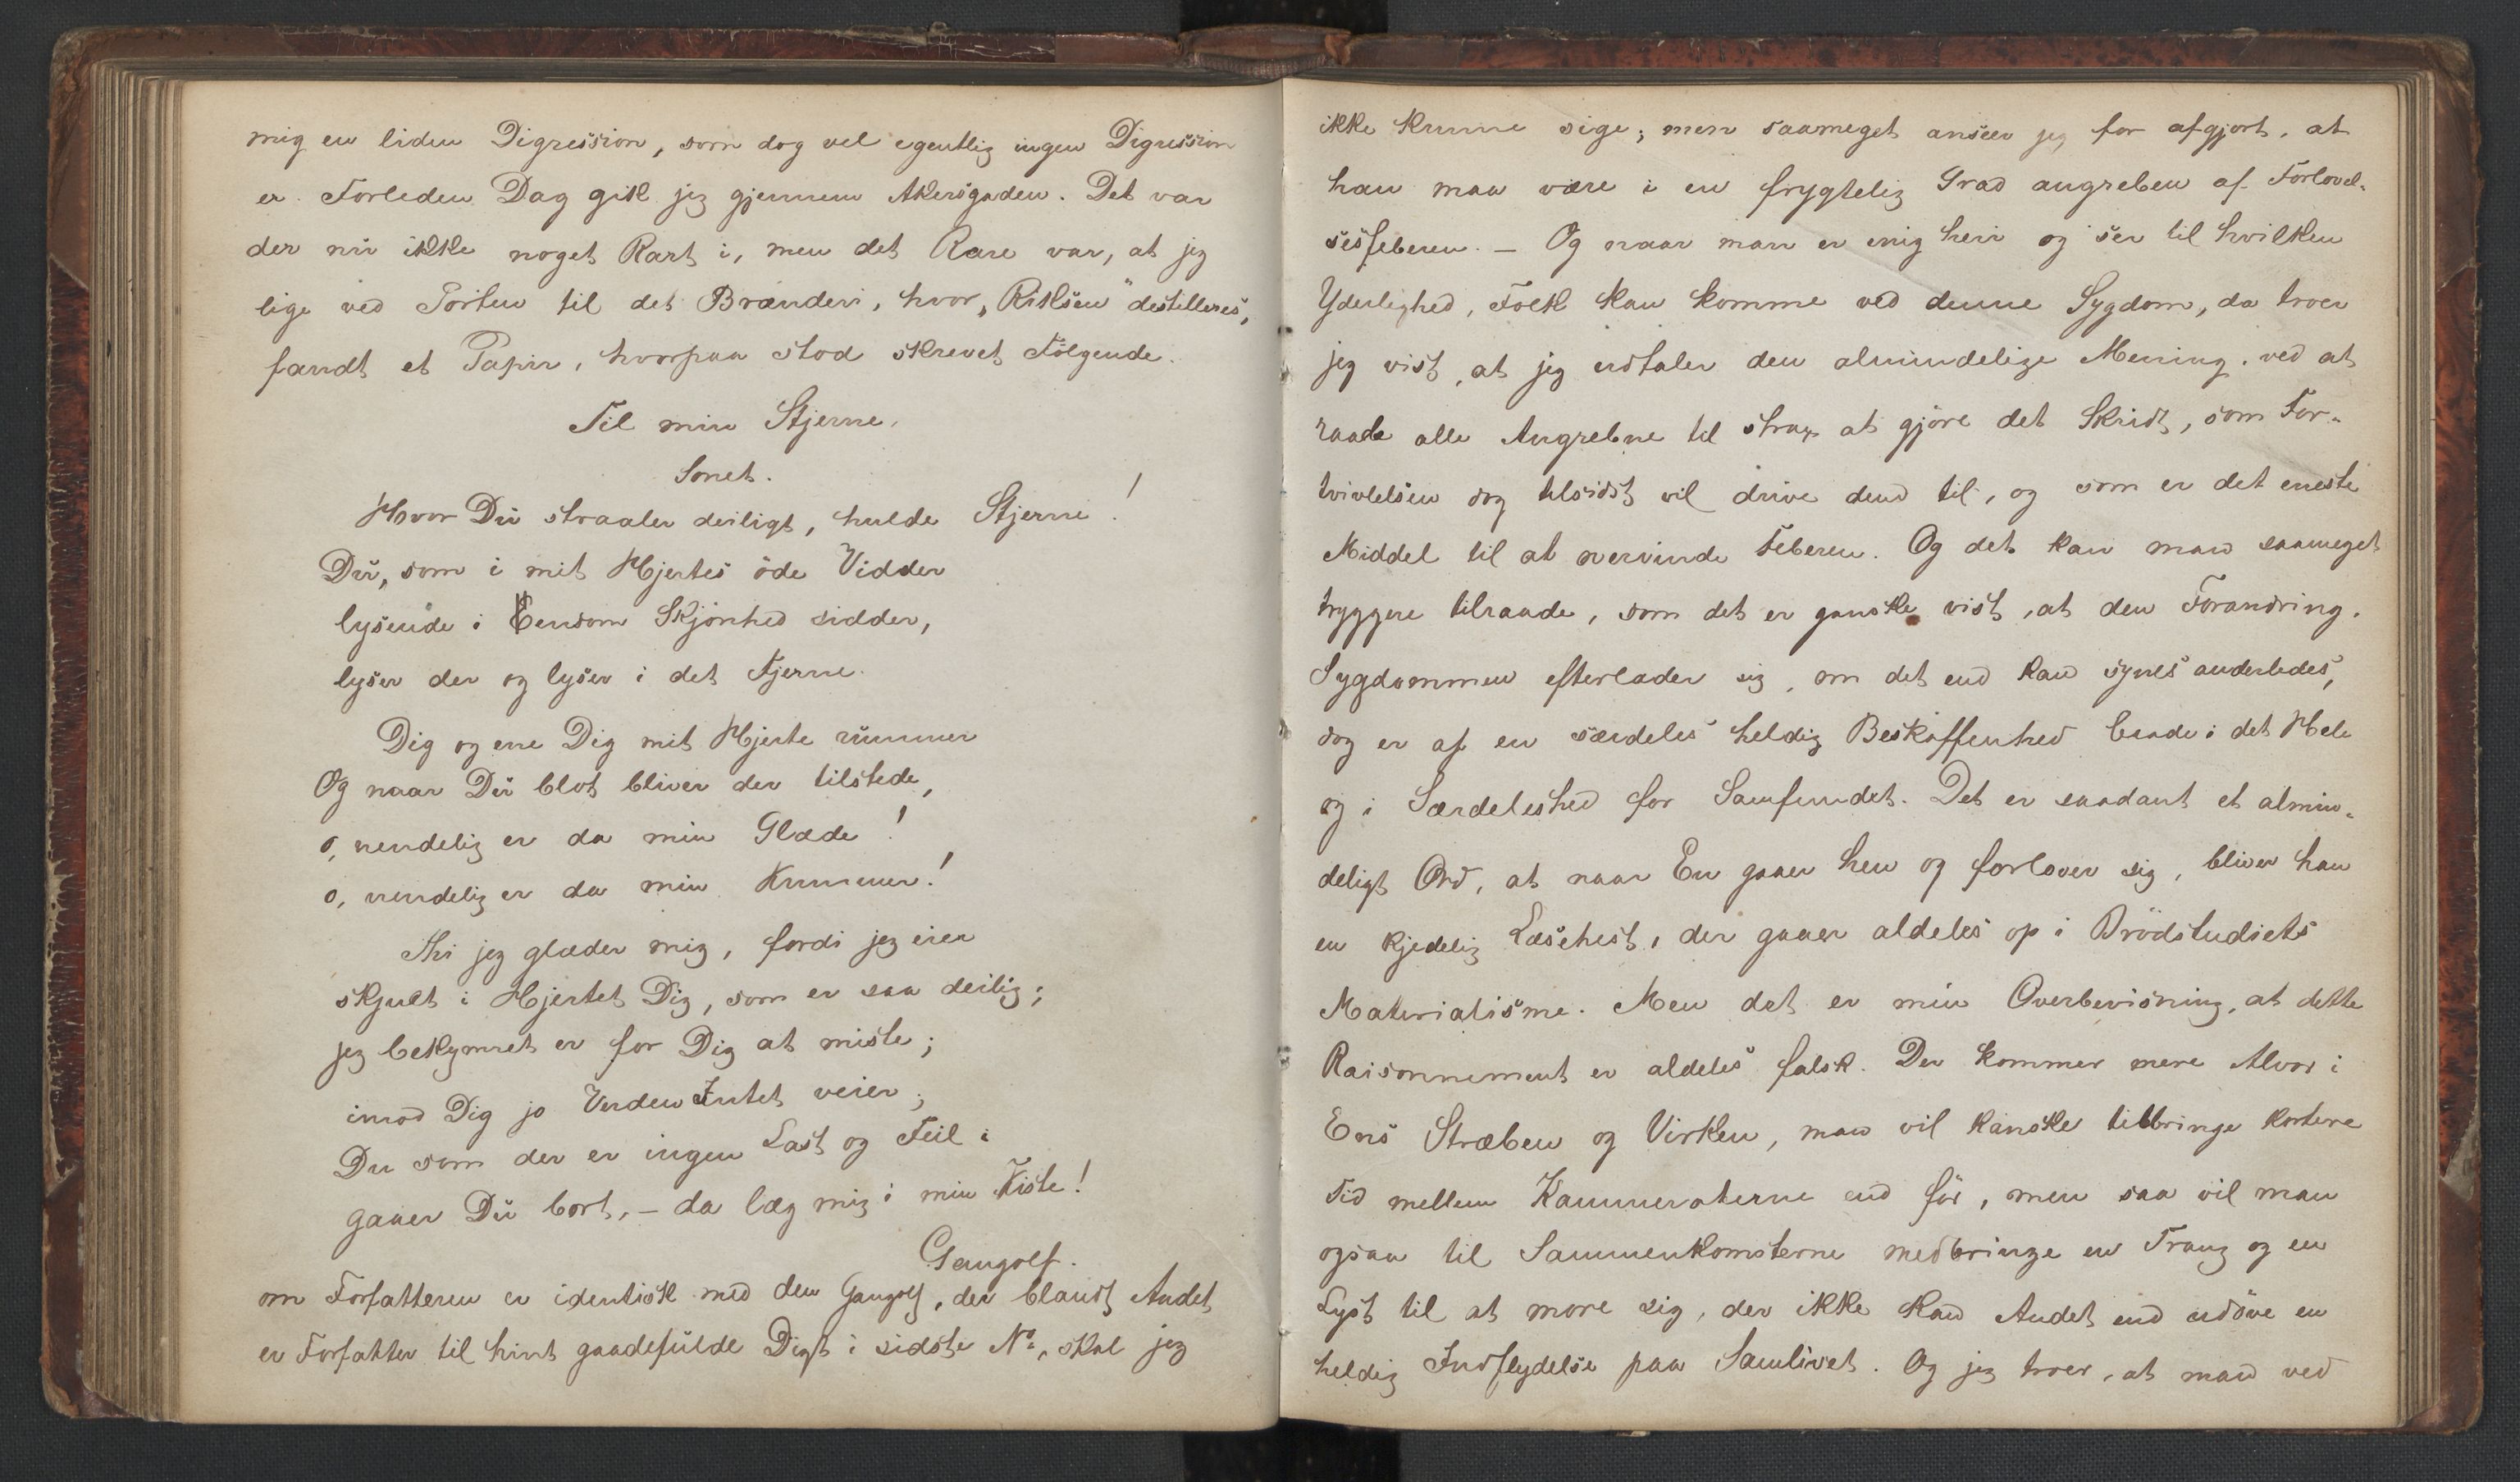 mig en liden Digression, som dog vel egentlig ingen Digression
er. Forleden Dag gik jeg gjennem Akersgaden. Det var
der nu ikke noget Rart i, men det Rare var, at jeg
lige ved Porten til det Brænderi, hvor „Riksen” destilleres,
fandt et Papir, hvorpaa stod skrevet Følgende.
Til min Stjerne.
Sonet.
Hvor Du straaler deiligt, hulde Stjerne!
Du, som i mit Hjertes öde Vidder
lysende i Eensom Skjönhed sidder,
lyser der og lyser i det Fjerne.
Dig og ene Dig mit Hjerte rummer
Og naar Du blot bliver der tilstede,
o, uendelig er da min Glæde!
o, uendelig er da min Kummer!
Thi jeg glæder mig, fordi jeg eier
skjult i Hjertet Dig, som er saa deilig;
jeg bekymret er for Dig at miste;
imod Dig jo Verden Intet veier;
Du som der er ingen Last og Feil i
gaaer Du bort, – da læg mig i min Kiste!
Gangolf.
om Forfatteren er identisk med den Gangolf, der blandt Andet
er Forfatter til hint gaadefulde Digt i sidste No, skal jeg
ikke kunne sige; men saameget anseer jeg for afgjort, at
han maa være i en frygtelig Grad angreben af Forlovel-
sesfeberen. – Og naar man er enig heri og ser til hvilken
Yderlighed, Folk kan komme ved denne Sygdom, da troer
jeg vist, at jeg udtaler den almindelige Mening, ved at
raade alle Angrebne til strax at gjöre det Skridt, som For-
tvivlelsen dog tilsidst vil drive dend til, og som er det eneste
Middel til at overvinde Feberen. Og det kan man saameget
tryggere tilraade, som det er ganske vist, at den Forandring,
Sygdommen efterlader sig, om det end kan synes anderledes,
dog er af en særdeles heldig Beskaffenhed baade i det Hele
og i Særdeleshed for Samfundet. Det er saadant et almin-
deligt Ord, at naar En gaaer hen og forlover sig, bliver han
en kjedelig Læsehest, der gaaer aldeles op i Brödstudiets
Materialisme. Men det er min Overbevisning, at dette
Raisonnement er aldeles falsk. Der kommer mere Alvor i
Ens Stræben og Virken, man vil kanske tilbringe kortere
Tid mellem Kammeraterne end för, men saa vil man
ogsaa til Sammenkomsterne medbringe en Trang og en
Lyst til at more sig, der ikke kan Andet end udöve en
heldig Indflydelse paa Samlivet. Og jeg troer, at man ved